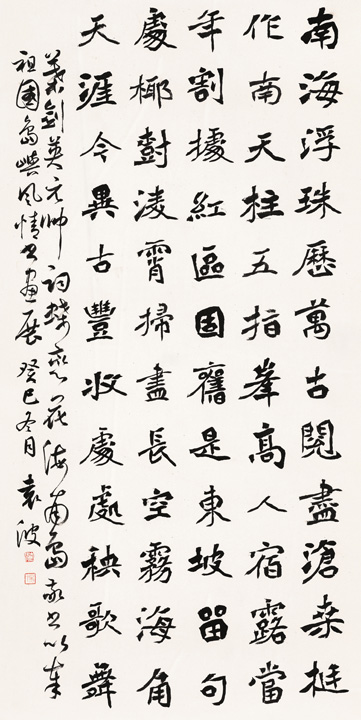 南海浮珠歷萬古閱盡滄桒挺
作南天柱五指峯高人宿露當
年割據紅區固舊是東坡留句
處椰樹凌霄掃盡長空霧海角
天涯今異古豐收處處秧歌舞
葉劍英元帥詞蝶恋花海南島敬书以奉
祖國島嶼風情书畫展癸巳冬月袁波